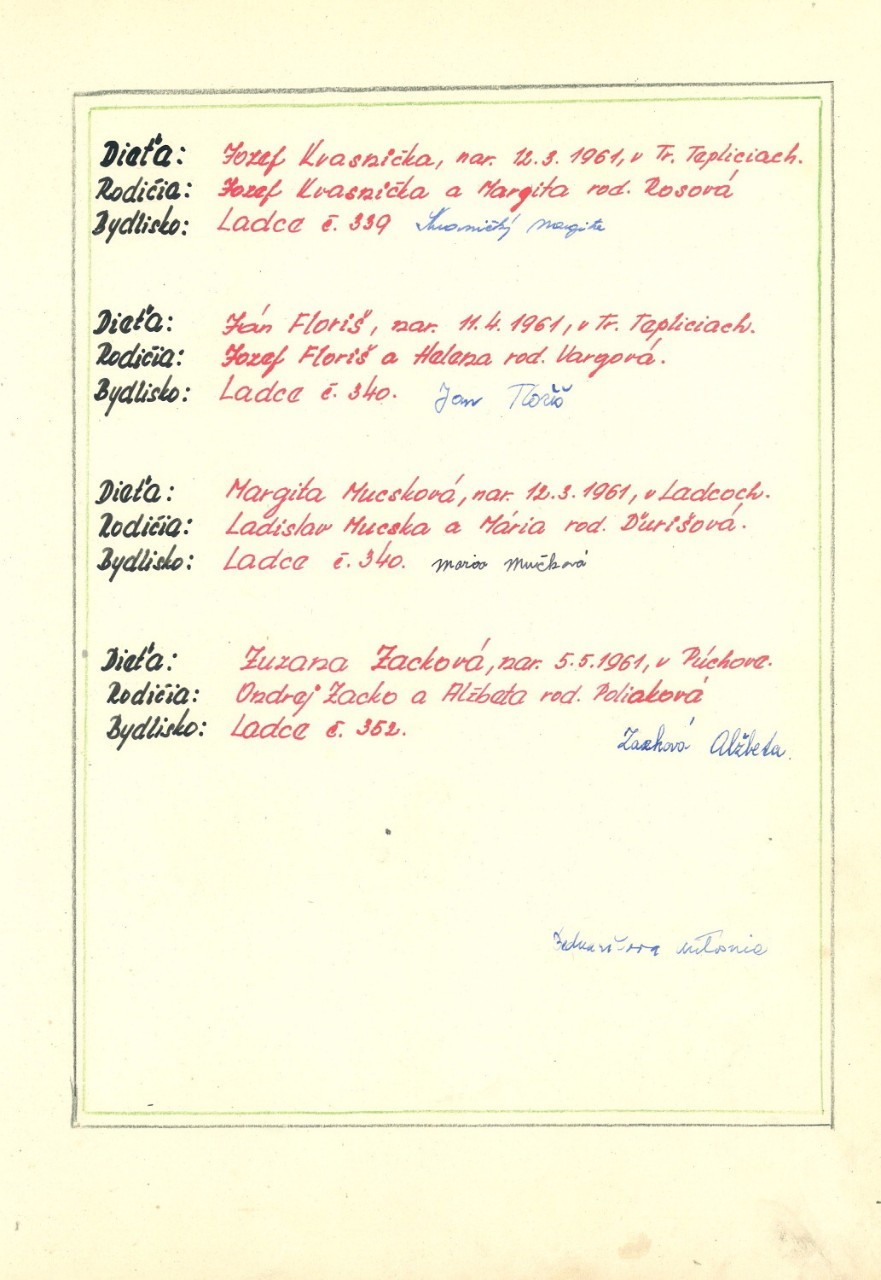 Dieťa: Jozef Kvasnička, nar. 12.3.1961, v Tr. Tepliciach.
Rodičia: Jozef Kvasnička a Margita rod. Rosová
Bydlisko: Ladce č. 339 Margita
Dieťa: Ján Floriš, nar. 11.4.1961, v Tr. Tepliciach.
Rodičia: Jozef Floriš a Helena rod. Vargová.
Bydlisko: Ladce č. 340. Jan Floriš
Dieťa: Margita Mucsková, nar. 12.3.1961, v Ladcoch.
Rodičia: Ladislav Mucska a Mária rod. Ďurišová.
Bydlisko: Ladce č. 340. Maria Mučková
Dieťa: Zuzana Zacková, nar. 5.5.1961, v Púchove.
Rodičia: Ondrej Zacko a Alžbeta rod. Poliaková
Bydlisko: Ladce č. 352.
Zacková Alžbeta.